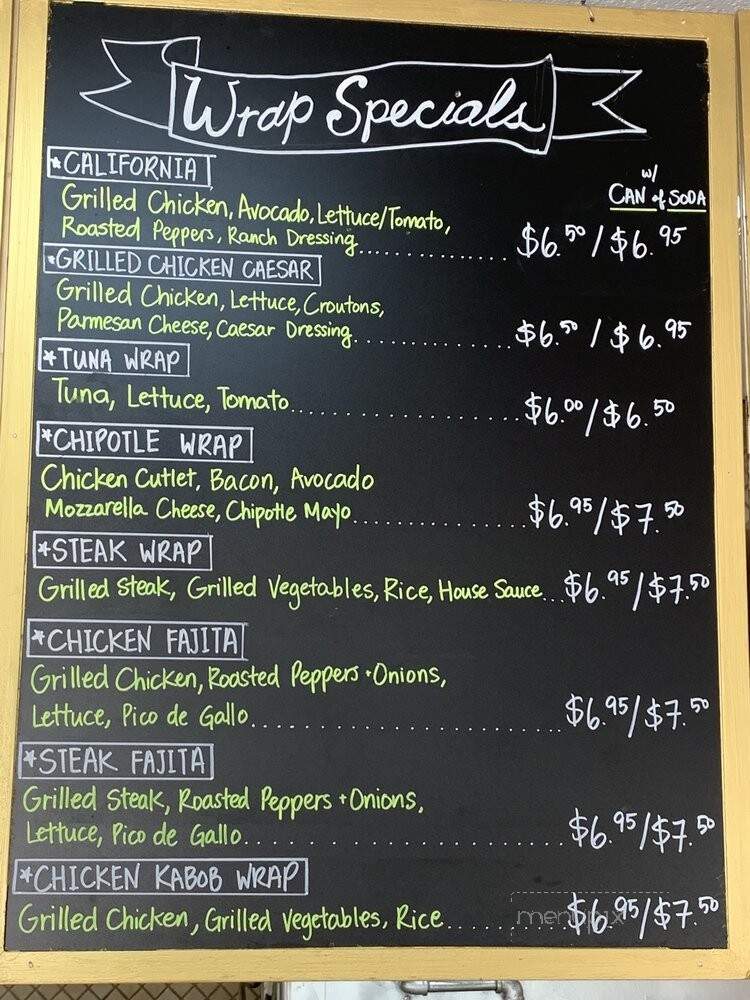 Wrap Specials
*CALIFORNIA
w/
CAN of SODA
Grilled Chicken, Avocado, Lettuce/Tomato,
Roasted Peppers, Ranch Dressing............... $6.50/$6.95
*GRILLED CHICKEN CAESAR
Grilled Chicken, Lettuce, Croutons,
Parmesan Cheese, Caesar Dressing............... $6.50/$6.95
*TUNA WRAP
Tuna, Lettuce, Tomato....................... $6.00/$6.50
*CHIPOTLE WRAP
Chicken Cutlet, Bacon, Avocado
Mozzarella Cheese, Chipotle Mayo................ $6.95/$7.50
*STEAK WRAP
Grilled Steak, Grilled Vegetables, Rice, House Sauce...$6.95/$7.50
*CHICKEN FAJITA
Grilled Chicken, Roasted Peppers +Onions,
Lettuce, Pico de Gallo............................. $6.95/$7.50
*STEAK FAJITA
Grilled Steak, Roasted Peppers +Onions,
Lettuce, Pico de Gallo............................. $6.95/$7.50
*CHICKEN KABOB WRAP
Grilled Chicken, Grilled Vegetables, Rice........... $6.95/$7.50
menupix